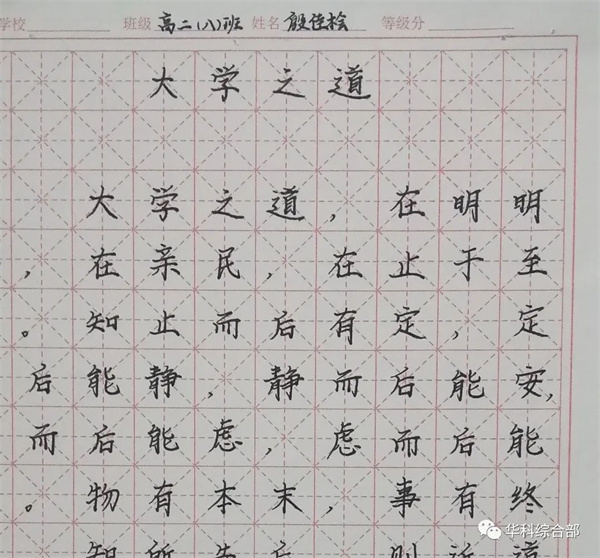 学校 班级 高二(八)班 姓名 殷佳桧 等级分
大学之道
大学之道，在明明
，在亲民，在止于至
。知止而后有定，定
后能静，静而后能安，
而后能虑，虑而后能
。物有本末，事有终
知所先后 则近道
华科综合部